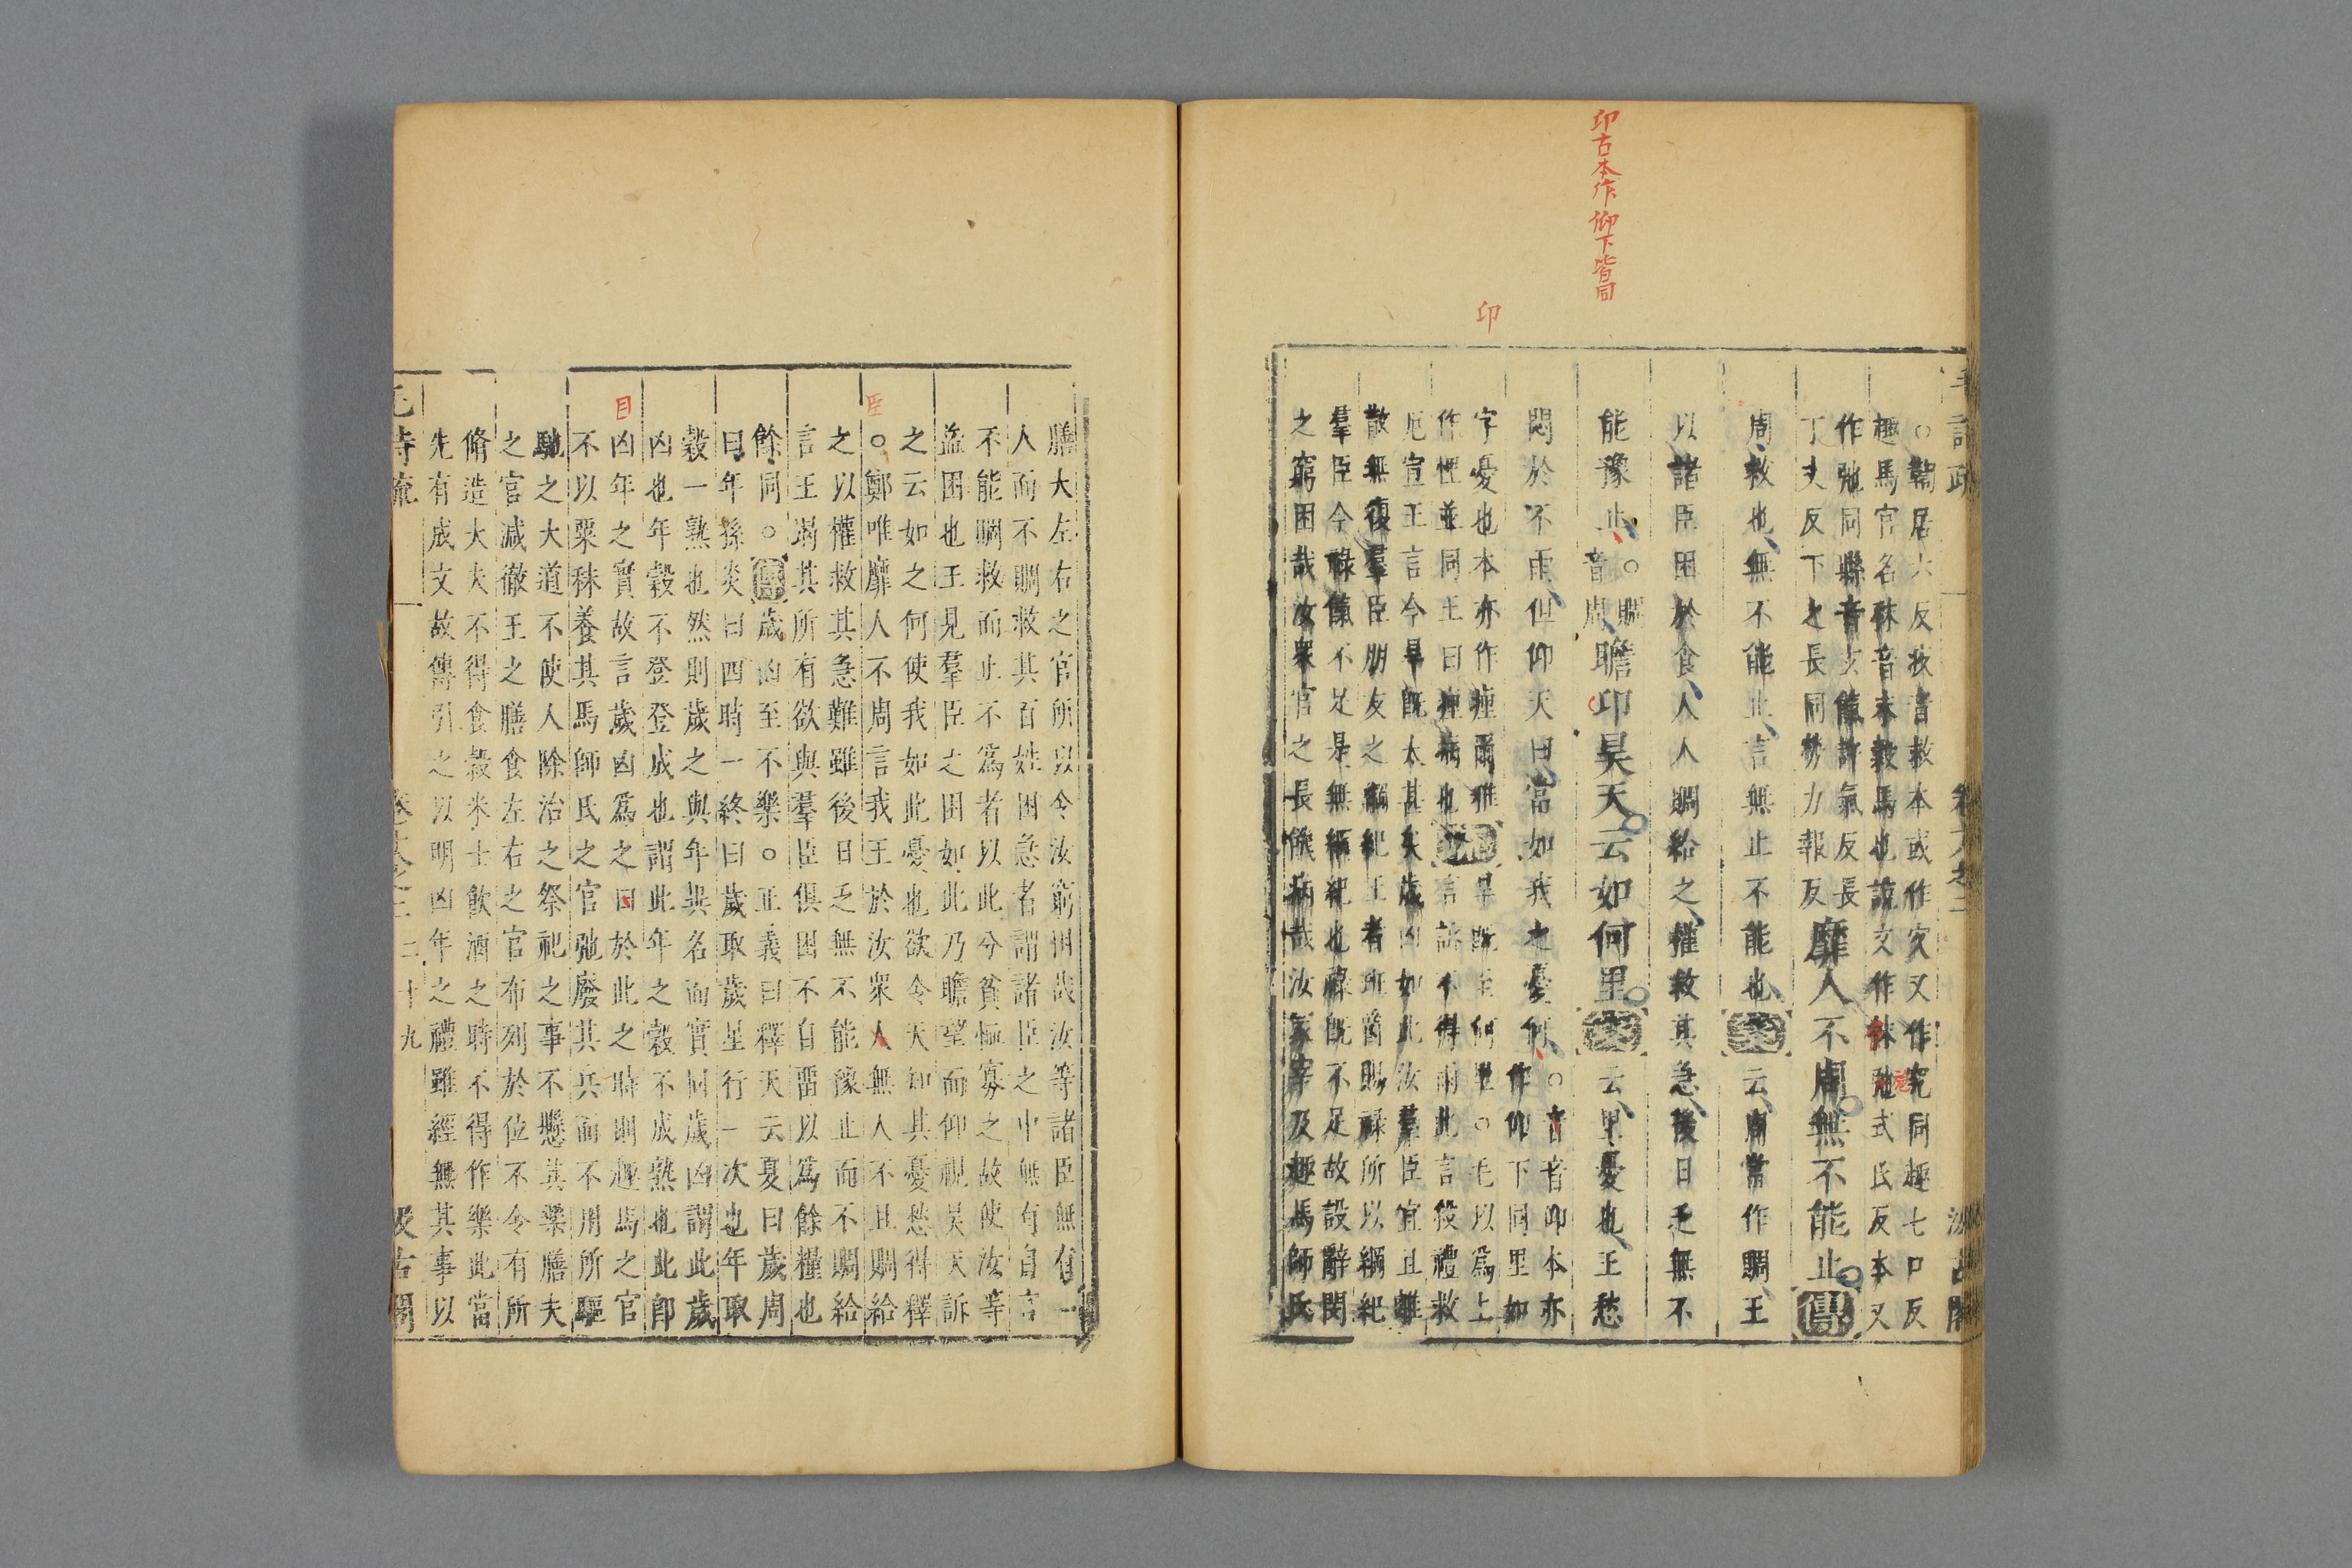 卬古本作仰下皆同
卬
○鞫居六反疚音救本或作宄又作究同趣七口反
趣馬官名秣音末穀馬也說文作䬴弛式氏反本又
作弛同縣音玄餼許氣反長
丁丈反下之長同勞力報反
靡人不周無不能止傳
周救也無不能止言無止不能也箋云周當作賙王
以諸臣困於食人人賙給之權救其急後日乏無不
能豫止○賙
音周
瞻卬昊天云如何里箋云里憂也王愁
悶於不雨但仰天曰當如我之憂何○卬音仰本亦
作仰下同里如
字憂也本亦作㾖爾雅
作悝並同王曰㾖病也疏
言訴不得雨此言役禮救
厄宣王言今旱旣太甚矣歲凶如此汝羣臣宜且離
散無復羣臣朋友之綱紀王者班賚賜祿所以綱紀
羣臣今祿餼不足是無綱紀也祿旣不足故設辭閔
之窮困哉汝衆官之長餱病哉汝冢宰及趣馬師氏
膳夫左右之官所以令汝窮困哉汝等諸臣無有一
人而不賙救其百姓困急者謂諸臣之中無有自言
不能賙救而止不爲者以此分貧恤寡之故使汝等
益困也王見羣臣之困如此乃瞻望而仰視昊天訴
之云如之何使我如此憂也欲令天知其憂愁得釋
臣
○鄭唯靡人不周言我王於汝衆人無人不且賙給
之以權救其急難雖後日乏無不能豫止而不賙給
言王竭其所有欲與羣臣俱困不自畱以爲餘糧也
餘同○傳歲凶至不樂○正義曰釋天云夏曰歲周
曰年孫炎曰四時一終曰歲取歲星行一次也年取
穀一熟也然則歲之與年異名而實同歲凶謂此歲
凶也年穀不登登成也謂此年之穀不成熟也此卽
目
凶年之實故言歲凶爲之曰於此之時則趣馬之官
不以粟秣養其馬師氏之官弛廢其兵而不用所驅
馳之大道不使人除治之祭祀之事不懸其樂膳夫
之官減徹王之膳食左右之官布列於位不令有所
脩造大夫不得食穀米士飮酒之時不得作樂此當
先有成文故傳引之以明凶年之禮雖經無其事以
二十九